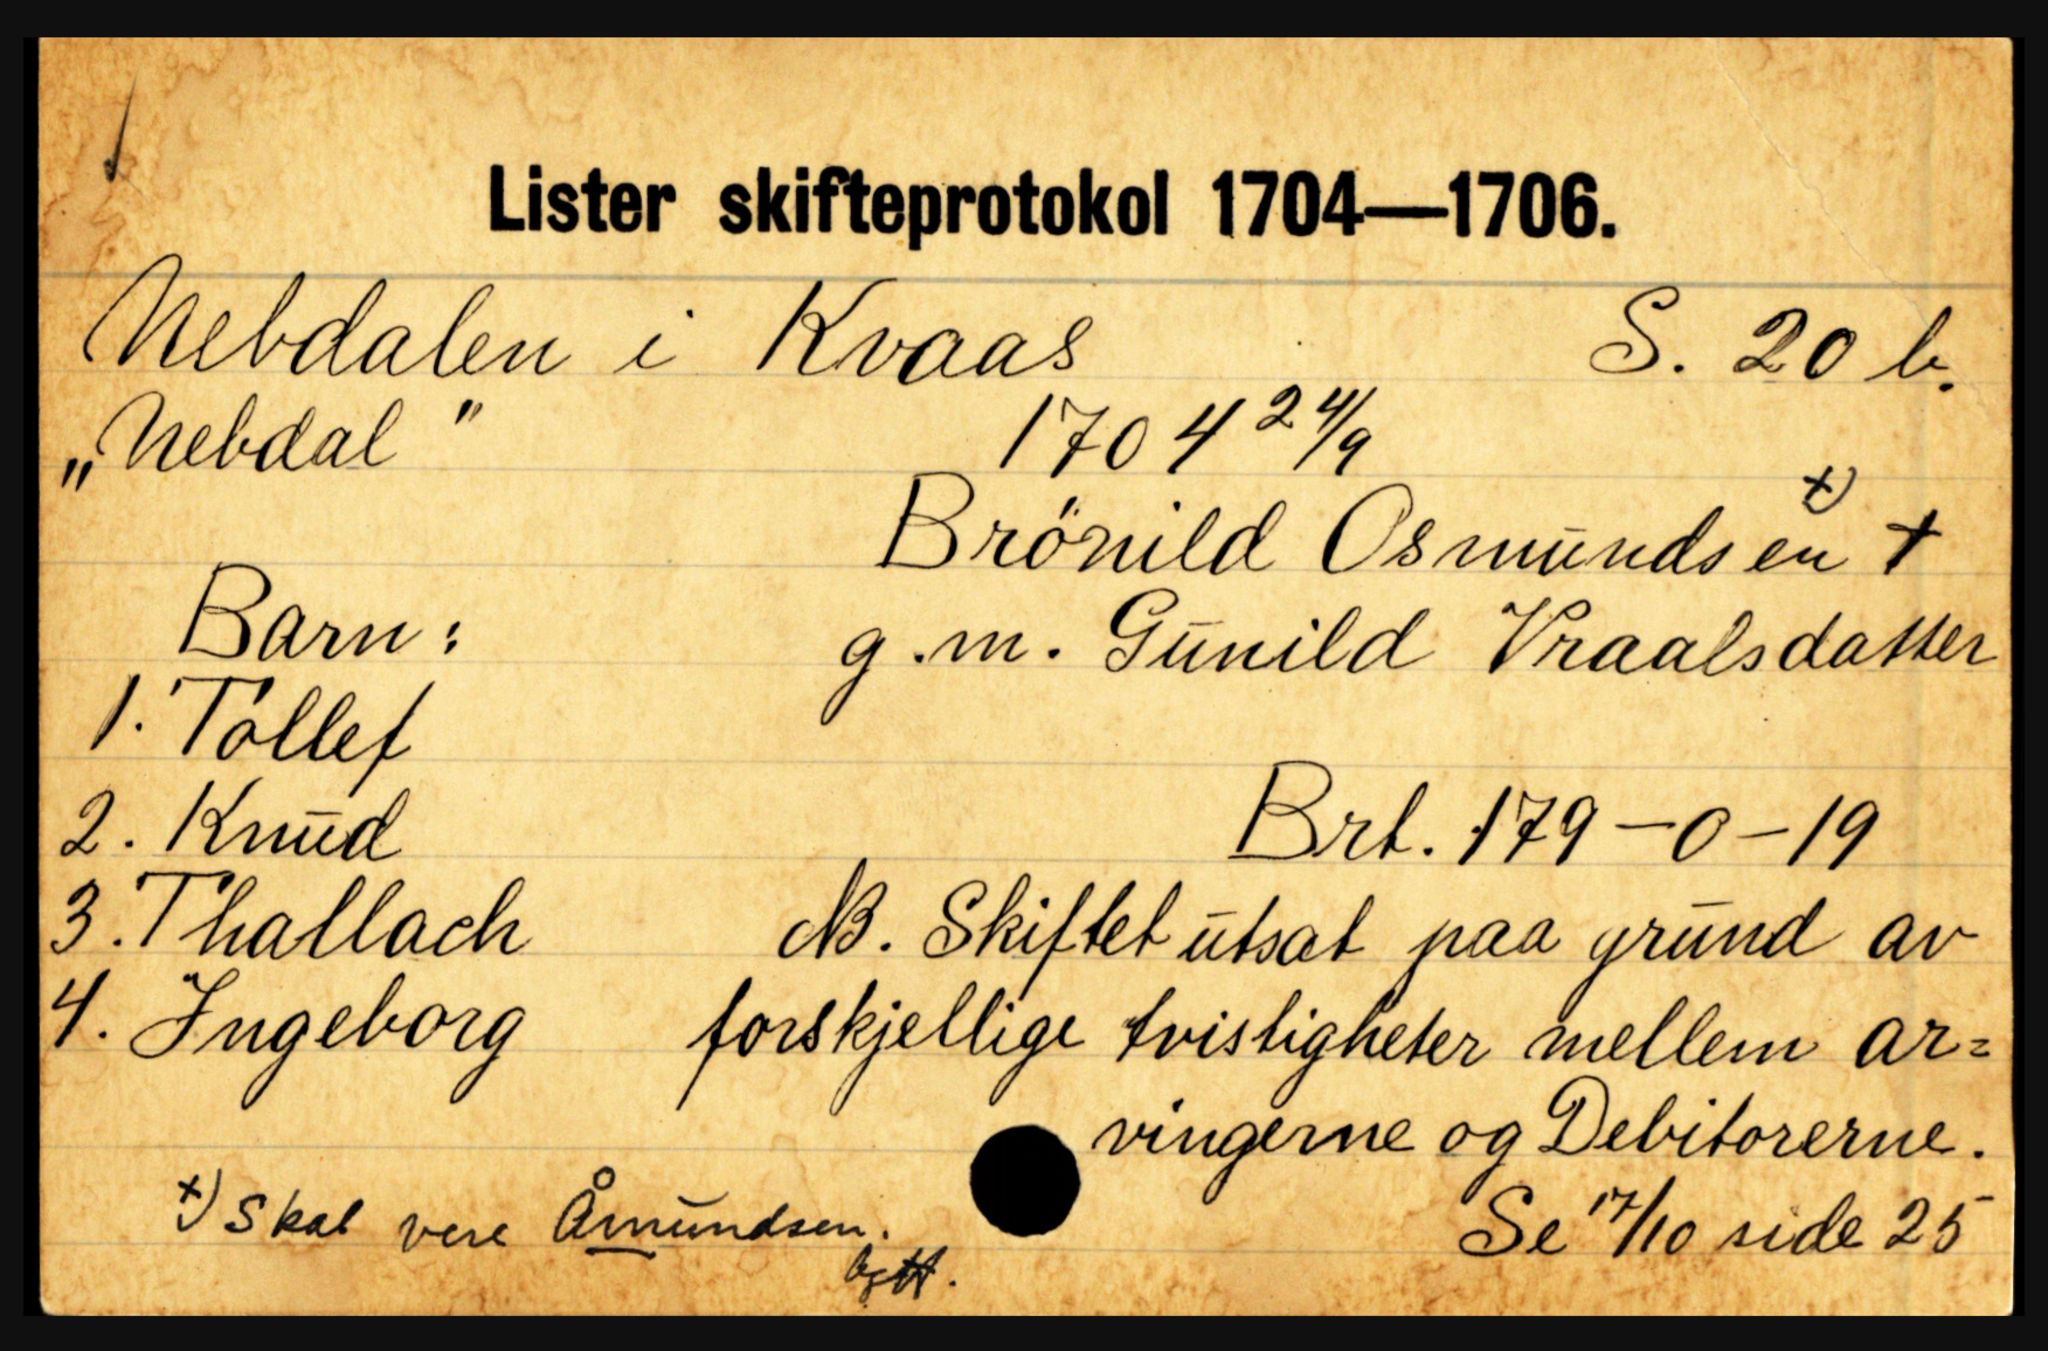 Lister skifteprotokol 1704—1706.
Nebdalen i Kvaas S. 20 b.
„Nebdal" 1704 24/9
Brönild Osmundsen x) †
Barn: g.m. Gunild Vraalsdatter
1. Tollef
2. Knud Brt. 179-0-19
3. Thallach NB. Skiftet utsat paa grund av
4. Ingeborg forskjellige tvistigheter mellem ar=
vingerne og Debitorerne.
x) Skal vere Åmundsen. Se 17/10 side 25